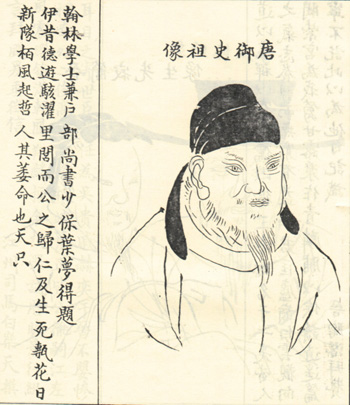 唐御史祖像
翰林學士兼戶部尚書少保葉夢得題
伊昔德遊駭濯里閭而公之歸仁及生死執花日
新隊栢風起哲人其萎命也天只